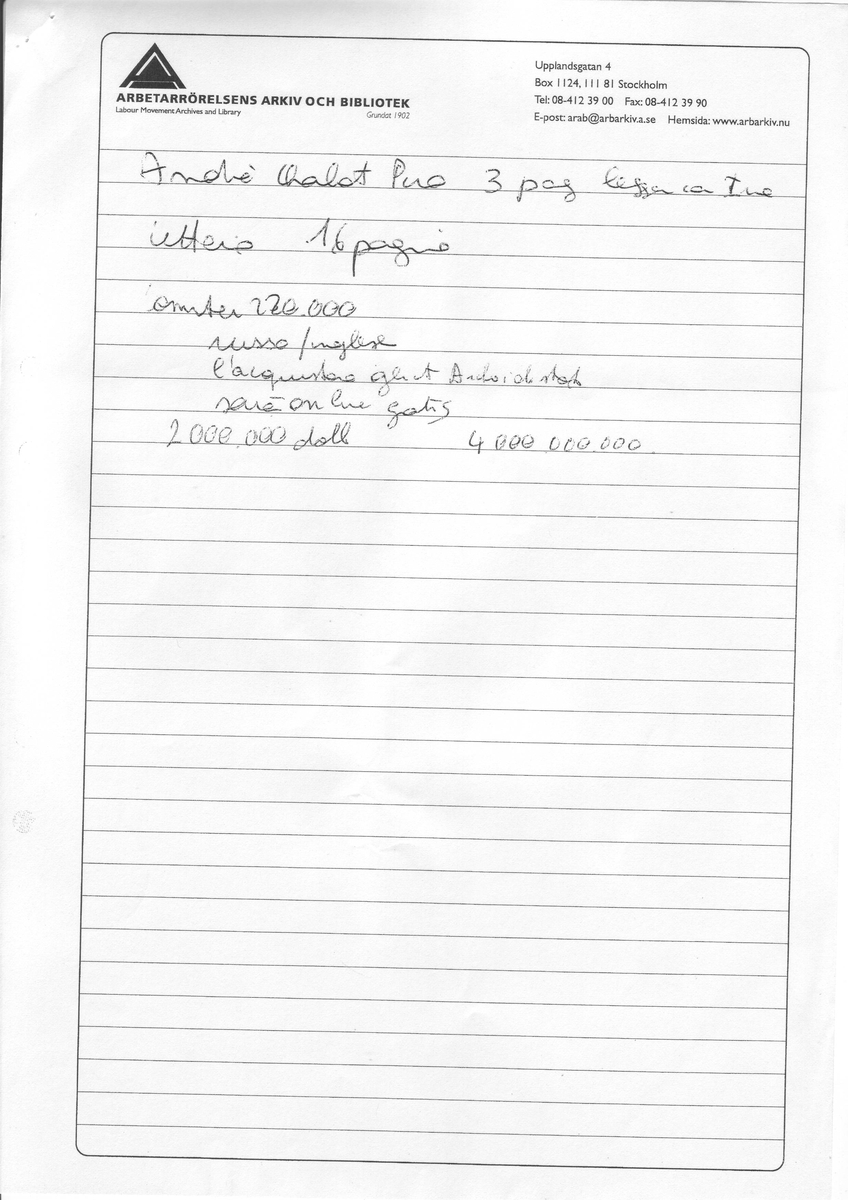 ARBETARRÖRELSENS ARKIV OCH BIBLIOTEK
Labour Movement Archives and Library
Grundat 1902
Upplandsgatan 4
Box 1124, 111 81 Stockholm
Tel: 08-412 39 00 Fax: 08-412 39 90
E-post: arab@arbarkiv.a.se Hemsida: www.arbarkiv.nu
André Chalot 3 pag
16
220.000
russo/inglese
l'acquistano
sarà on line gratis
2 000.000 doll 4 000 000.000